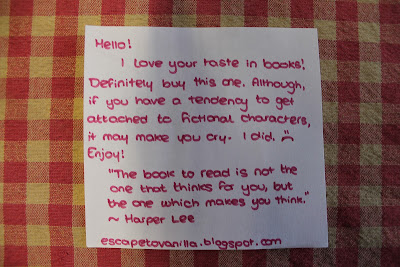 Hello!
I love your taste in books!
Definitely buy this one. Although,
if you have a tendency to get
attached to fictional characters,
it may make you cry. I did. :(
Enjoy!
"The book to read is not the
one that thinks for you, but
the one which makes you think."
~ Harper Lee
escapetovanilla.blogspot.com